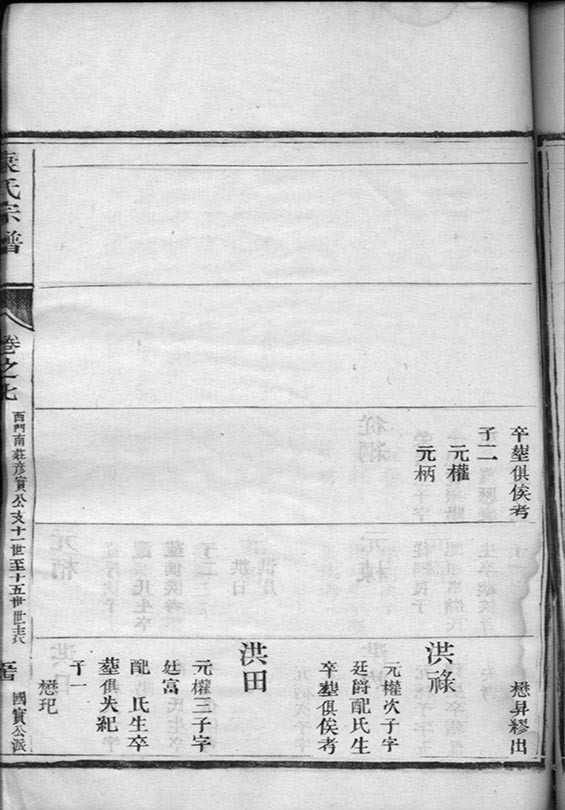 卒塟俱俟考
子二
元權
元柄
懋昇繆出
洪祿
元權次子字
廷爵配氏生
卒塟俱俟考
洪田
元權三子字
廷富
配 氏生卒
塟俱失紀
子一
懋玘
氏宗譜
卷之七
西門南莊彦實公支十一世至十五世世表
國實公派